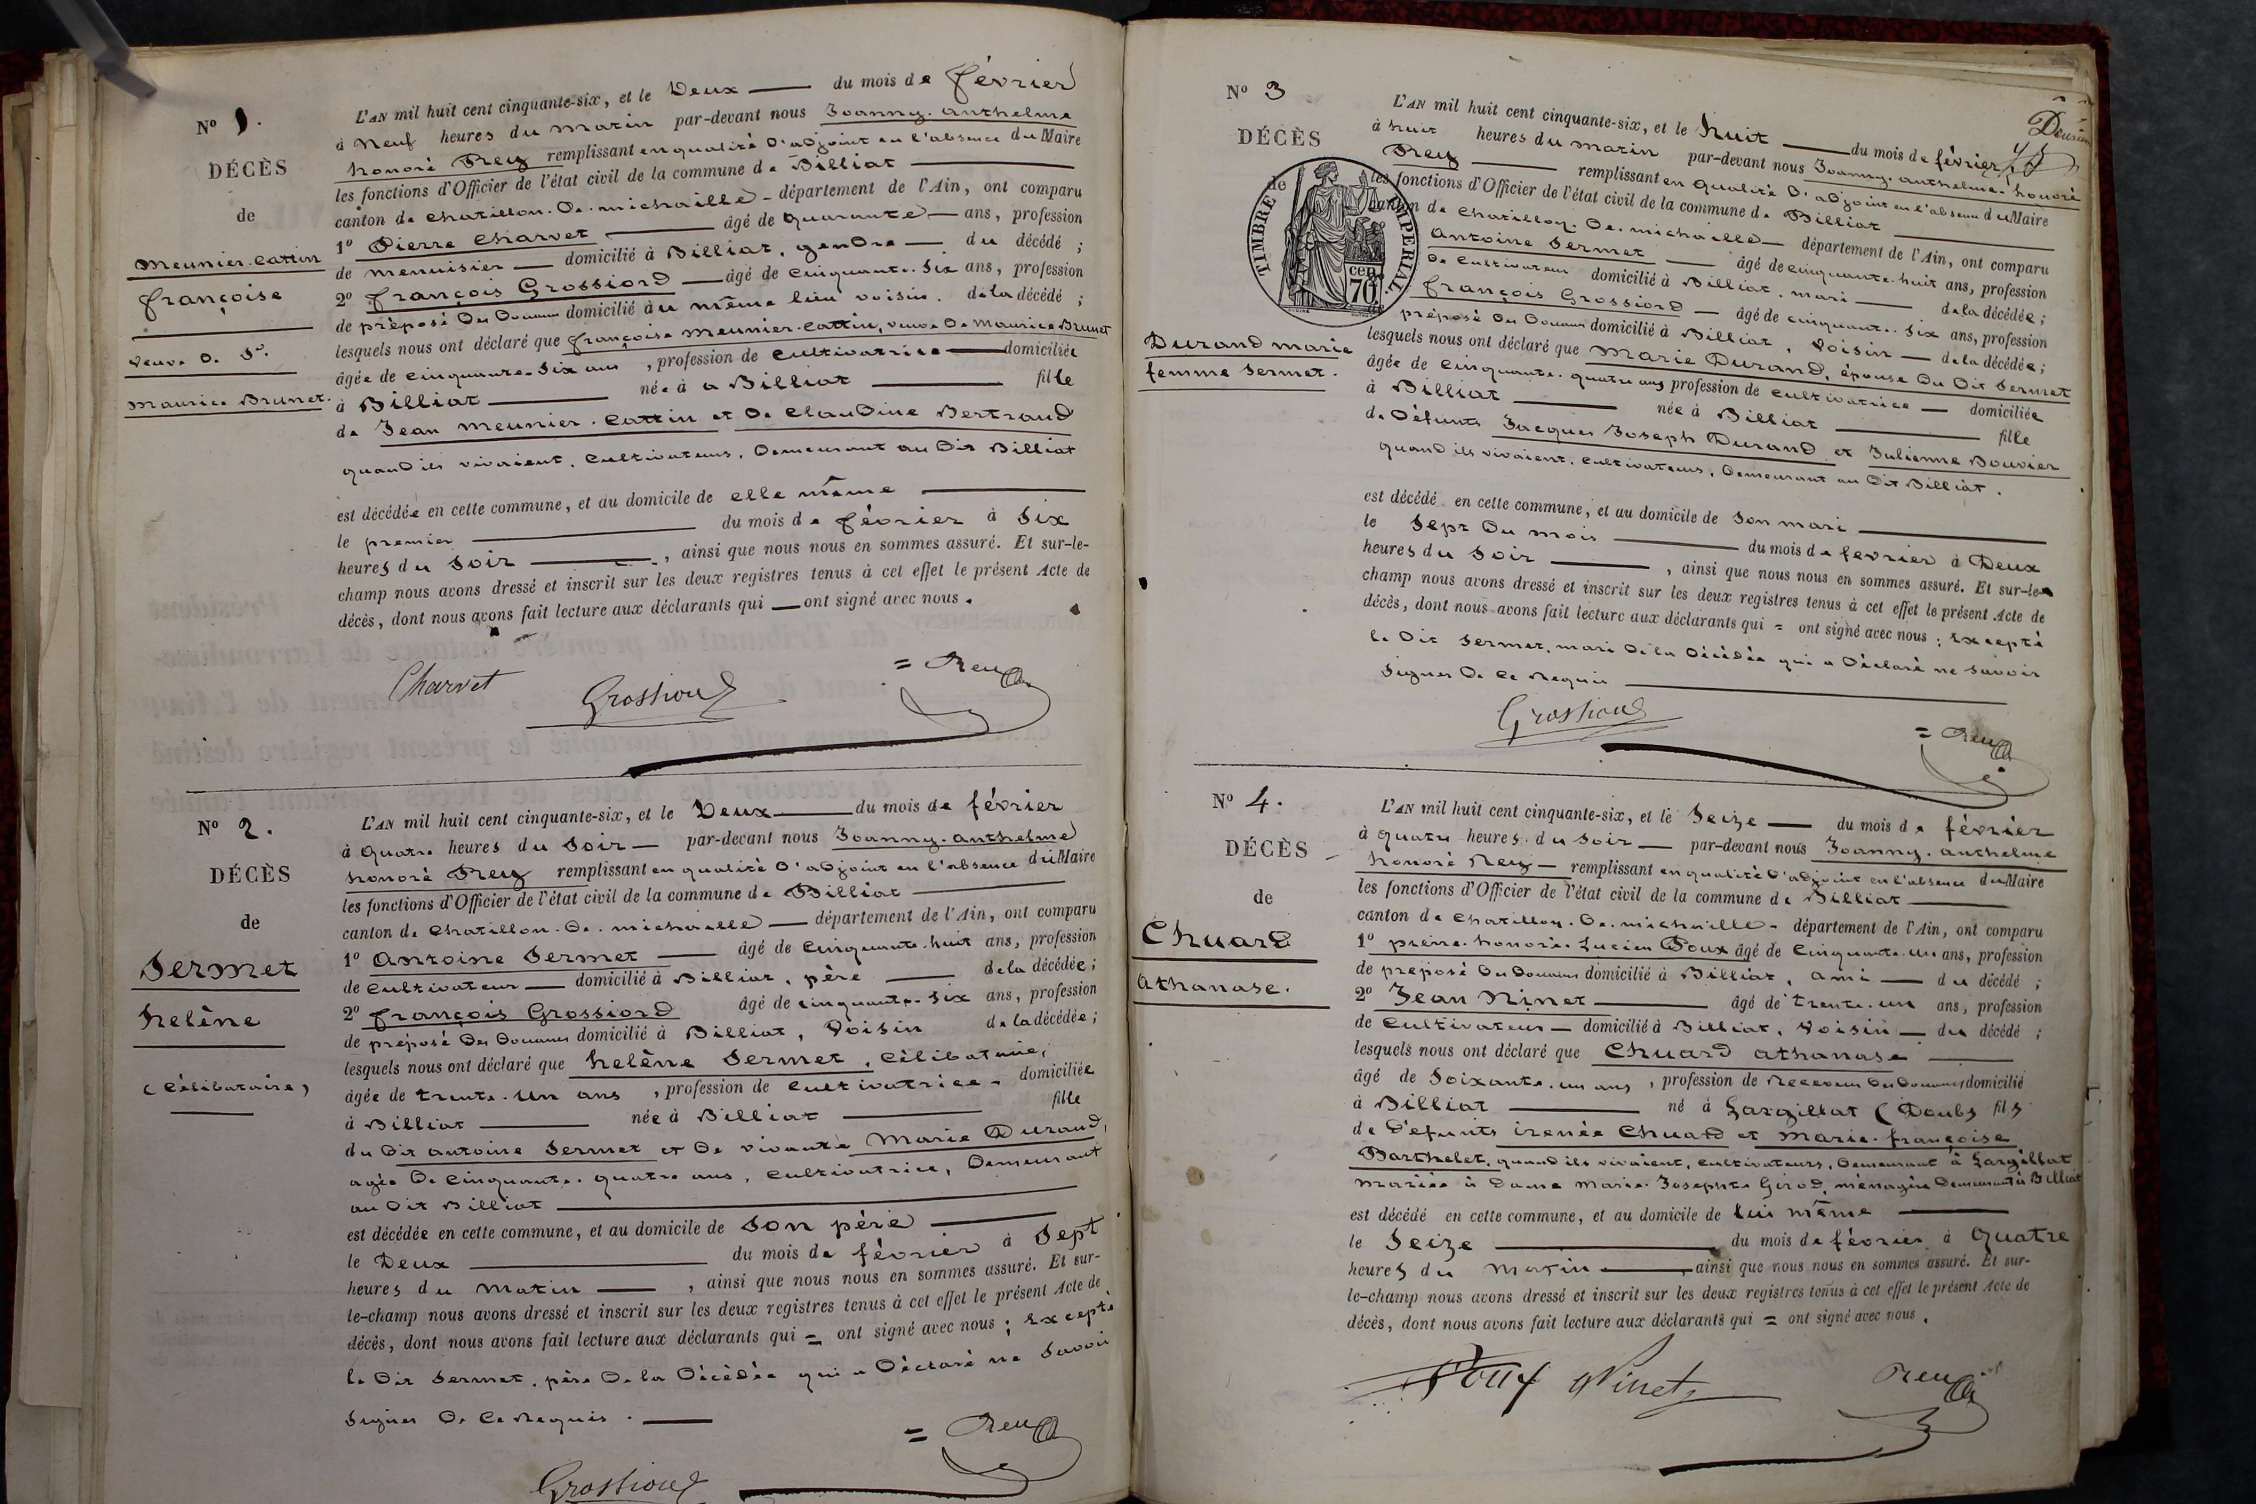 Nº 1.
DÉCÈS
de
Meunier-Cattin
françoise
veuve de Sr.
Maurice Brunet.
L'AN mil huit cent cinquante-six, et le Deux du mois de février
à Neuf heures du matin par-devant nous Joanny-anthelme
honoré Rey remplissant en qualité d'adjoint en l'absence du Maire
les fonctions d'Officier de l'état civil de la commune de Billiat
canton de Chatillon-de-michaille - département de l'Ain, ont comparu
1º Pierre Charvet âgé de quarante ans, profession
de menuisier domicilié à Billiat, gendre du décédé ;
2º françois Grossiord âgé de cinquante-six ans, profession
de préposé des Douanes domicilié au même lieu voisin. de la décédé ;
lesquels nous ont déclaré que françoise Meunier-Cattin, veuve de Maurice Brunet
âgée de cinquante-six ans, profession de Cultivatrice domiciliée
à Billiat née à a Billiat fille
de Jean Meunier-Cattin et de Claudine Bertrand
quand ils vivaient, Cultivateurs, Demeurant au Dit Billiat
est décédée en cette commune, et au domicile de elle même
le premier du mois de février à Six
heures du Soir, ainsi que nous nous en sommes assuré. Et sur-le-
champ nous avons dressé et inscrit sur les deux registres tenus à cet effet le présent Acte de
décès, dont nous avons fait lecture aux déclarants qui ont signé avec nous.
Charvet Grossiord = Rey
Nº 2.
DÉCÈS
de
Sermet
helène
(Célibataire)
L'AN mil huit cent cinquante-six, et le Deux du mois de février
à Quatre heures du Soir par-devant nous Joanny-anthelme
honoré Rey remplissant en qualité d'adjoint en l'absence du Maire
les fonctions d'Officier de l'état civil de la commune de Billiat
canton de Chatillon-de-michaille département de l'Ain, ont comparu
1º Antoine Sermet âgé de cinquante-huit ans, profession
de Cultivateur domicilié à Billiat, père de la décédée ;
2º françois Grossiord âgé de cinquante-six ans, profession
de préposé des Douanes domicilié à Billiat, Voisin de la décédée ;
lesquels nous ont déclaré que helène Sermet, Célibataire,
âgée de trente-un ans, profession de Cultivatrice - domiciliée
à Billiat née à Billiat fille
du Dit antoine Sermet et de vivante Marie Durand,
agée De Cinquante-quatre ans, Cultivatrice, Demeurant
au Dit Billiat
est décédée en cette commune, et au domicile de Son père
le Deux du mois de février à Sept
heures du Matin, ainsi que nous nous en sommes assuré. Et sur-
le-champ nous avons dressé et inscrit sur les deux registres tenus à cet effet le présent Acte de
décès, dont nous avons fait lecture aux déclarants qui = ont signé avec nous ; Excepté
le Dit Sermet, père De la Décédée qui a Déclaré ne Savoir
Signer De Ce Requis.
Grossiord = Rey
Nº 3
DÉCÈS
de
TIMBRE IMPERIAL
cen.
70
Durand marie
femme Sermet.
L'AN mil huit cent cinquante-six, et le huit du mois de février
à huit heures du matin par-devant nous Joanny-anthelme-honoré
Rey remplissant en qualité d'adjoint en l'absence du Maire
les fonctions d'Officier de l'état civil de la commune de Billiat
canton de Chatillon-de-michaille département de l'Ain, ont comparu
Antoine Sermet âgé de cinquante-huit ans, profession
de Cultivateur domicilié à Billiat, mari de la décédée ;
françois Grossiord âgé de cinquante-six ans, profession
préposé des Douanes domicilié à Billiat, Voisin de la décédée ;
lesquels nous ont déclaré que Marie Durand, épouse Du Dit Sermet
âgée de cinquante-quatre ans profession de cultivatrice domiciliée
à Billiat née à Billiat fille
de Défunts Jacques Joseph Durand et Julienne Bouvier
quand ils vivaient, Cultivateurs, Demeurant au Dit Billiat.
est décédé en cette commune, et au domicile de Son mari
le Sept Du mois du mois de fevrier à Deux
heures du Soir, ainsi que nous nous en sommes assuré. Et sur-le-
champ nous avons dressé et inscrit sur les deux registres tenus à cet effet le présent Acte de
décès, dont nous avons fait lecture aux déclarants qui = ont signé avec nous ; Excepté
le Dit Sermet, mari De la Décédée qui a Déclaré ne Savoir
Signer De Ce Requis
Grossiord = Rey
Nº 4.
DÉCÈS
de
Chuard
Athanase.
L'AN mil huit cent cinquante-six, et le Seize du mois de février
à quatre heures du Soir par-devant nous Joanny-anthelme
honoré Rey remplissant en qualité d'adjoint en l'absence du Maire
les fonctions d'Officier de l'état civil de la commune de Billiat
canton de Chatillon-de-michaille - département de l'Ain, ont comparu
1º pierre-honoré-Lucien Poux âgé de Cinquante-un ans, profession
de preposé Des Douanes domicilié à Billiat, ami du décédé ;
2º Jean Ninet âgé de trente-un ans, profession
de Cultivateur domicilié à Billiat, Voisin du décédé ;
lesquels nous ont déclaré que Chuard athanase
âgé de Soixante-un ans, profession de Receveur Des Douanes domicilié
à Billiat né à Gargillat (Doubs) fils
de Défunts irenée Chuard et Marie-françoise
Barthelet, quand ils vivaient, Cultivateurs, Demeurant à Gargillat
Mariée à Dame Marie-Josephte Girod, ménagère Demeurant à Billiat
est décédé en cette commune, et au domicile de lui même
le Seize du mois de février à Quatre
heures du Matin, ainsi que nous nous en sommes assuré. Et sur-
le-champ nous avons dressé et inscrit sur les deux registres tenus à cet effet le présent Acte de
décès, dont nous avons fait lecture aux déclarants qui = ont signé avec nous.
Poux Ninet Rey